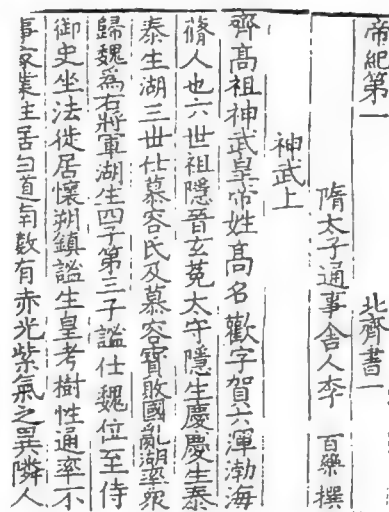 帝紀第一 北齊書一
隋太子通事舍人李 百藥 撰
神武上
齊髙祖神武皇帝姓髙名歡字賀六渾勃海
脩人也六世祖隱晉玄菟太守隱生慶慶生泰
泰生湖三世仕慕容氏及慕容寶敗國亂湖率衆
歸魏爲右將軍湖生四子第三子謐仕魏位至侍
御史坐法徙居懷朔鎮謐生皇考樹性通率不
事家業住居白道南數有赤光紫氣之異隣人